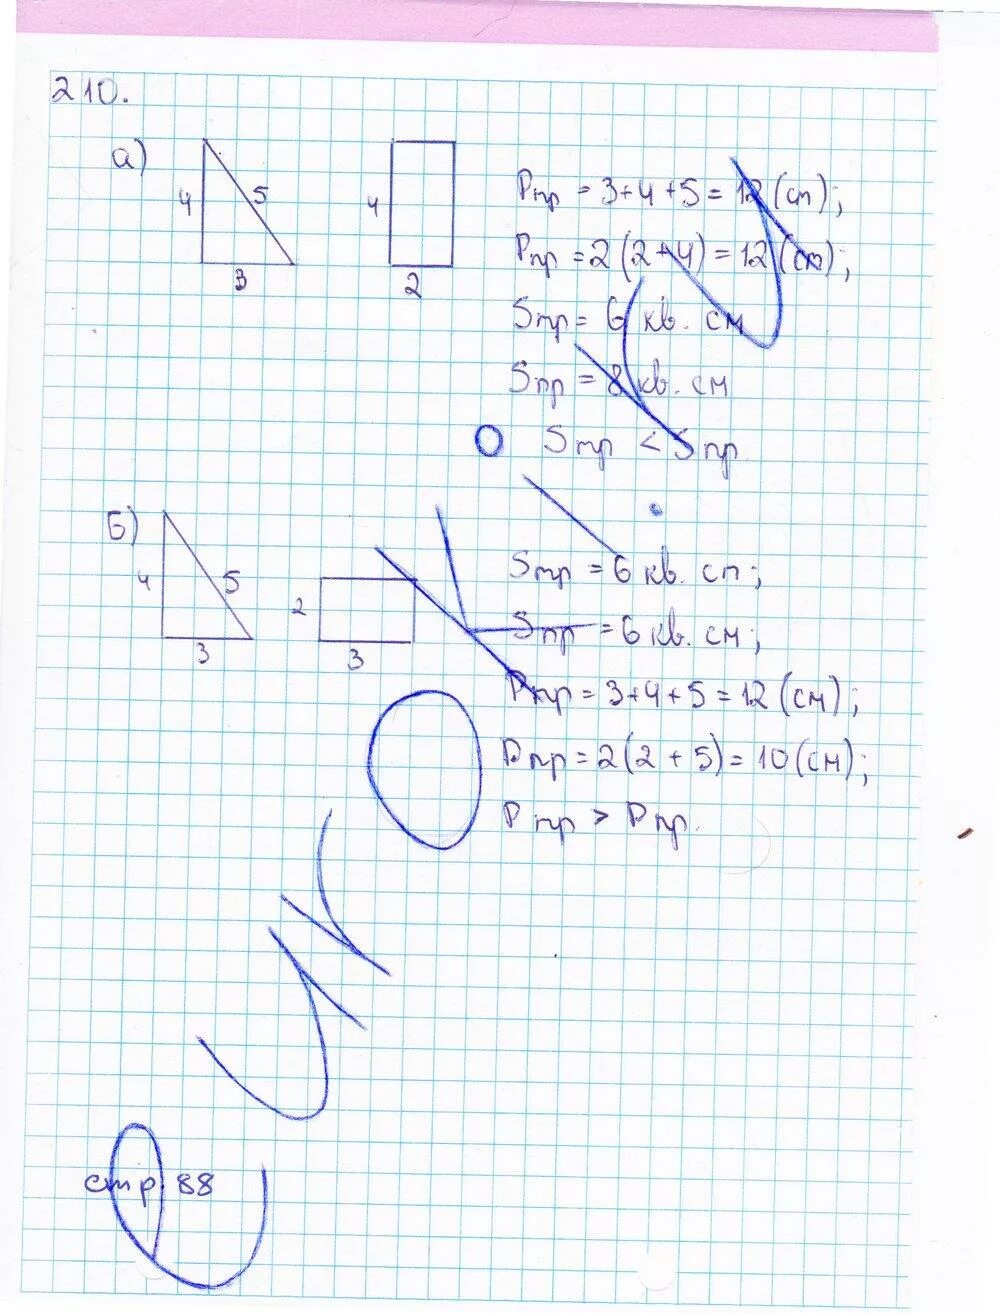 210.
а)
4
5
3
4
2
Pтр = 3+4+5 = 12 (см);
Pпр = 2(2+4) = 12 (см);
Sтр = 6 кв. см
Sпр = 8 кв. см
Sтр < Sпр
б)
4
5
3
2
3
Sтр = 6 кв. см;
Sпр = 6 кв. см;
Pтр = 3+4+5 = 12 (см);
Pпр = 2(2 + 5) = 10 (см);
Pтр > Pпр.
стр. 88